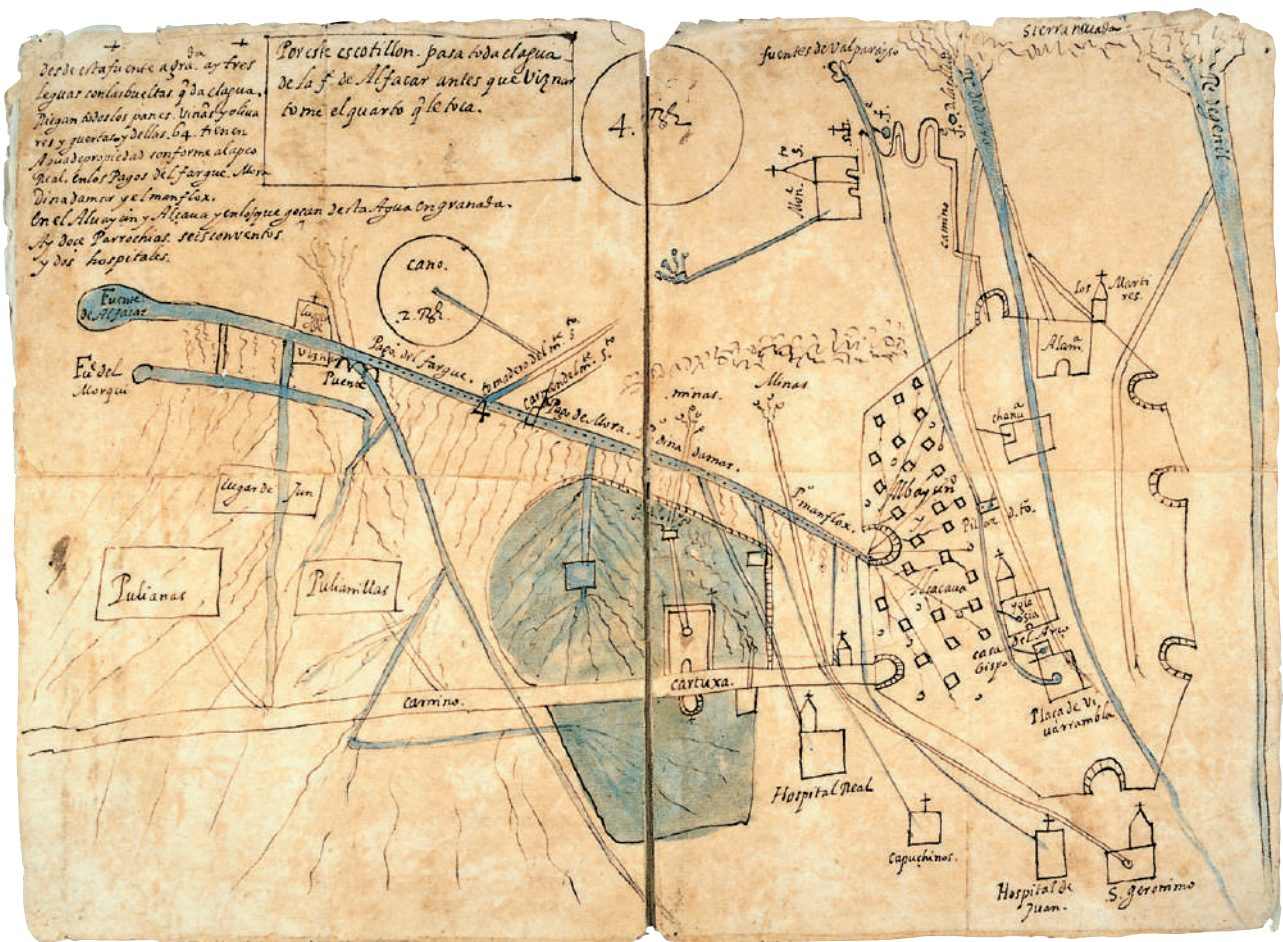 desde esta fuente a gra.da ay tres
leguas con las bueltas q̃ da el agua.
Riegan todos los panes. viñas y oliva
res y guertas y dellas. 64. tienen
Agua de propiedad conforme al apeo
Real. en los Pagos del fargue. Mora
Dinadamar y el manflox.
En el Aluayçin y Alcaua y en los que goçan desta Agua en granada.
Ay doçe Parrochias. seis conventos
y dos hospitales.
Por este escotillon. pasa toda el agua
de la f.e de Alfacar antes que Viznar
tome el quarto q̃ le toca.
4.
fuentes de valparayso
Sierra nevada
Rio de genil
camino
los Martires.
Alam.a
chanu.a
Fuente
de Alfacar
Fu.e del
Morqui
cano.
2.
Viznar
Puente
Pago. del fargue.
tomadero del m.te S.to
carmen del m.te S.to
Pago de Mora.
dinadamar.
P.o manflox.
minas.
Minas
lugar de Jun
Pulianas
Pulianillas
camino.
cartuxa.
Albayçin
Pilar d. to.
Alcacaua
ygle
sia
casa del Arço
bispo
Plaça de Vi
uarrambla
Hospital Real
capuchinos.
Hospital de
Juan.
S. Geronimo